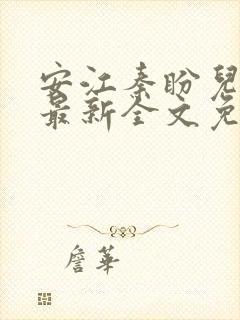 安江秦盼兒
最新全文免
詹華